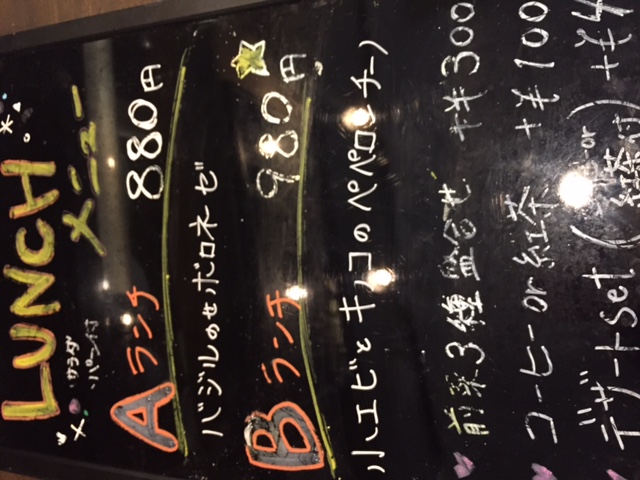 LUNCH
メニュー
サラダ
パン付
Aランチ 880円
バジルのせボロネーゼ
Bランチ 980円
小エビとキノコのペペロンチーノ
前菜3種盛合せ +¥300
コーヒー or 紅茶 +¥100
デザートset ( or 紅茶付) +¥4